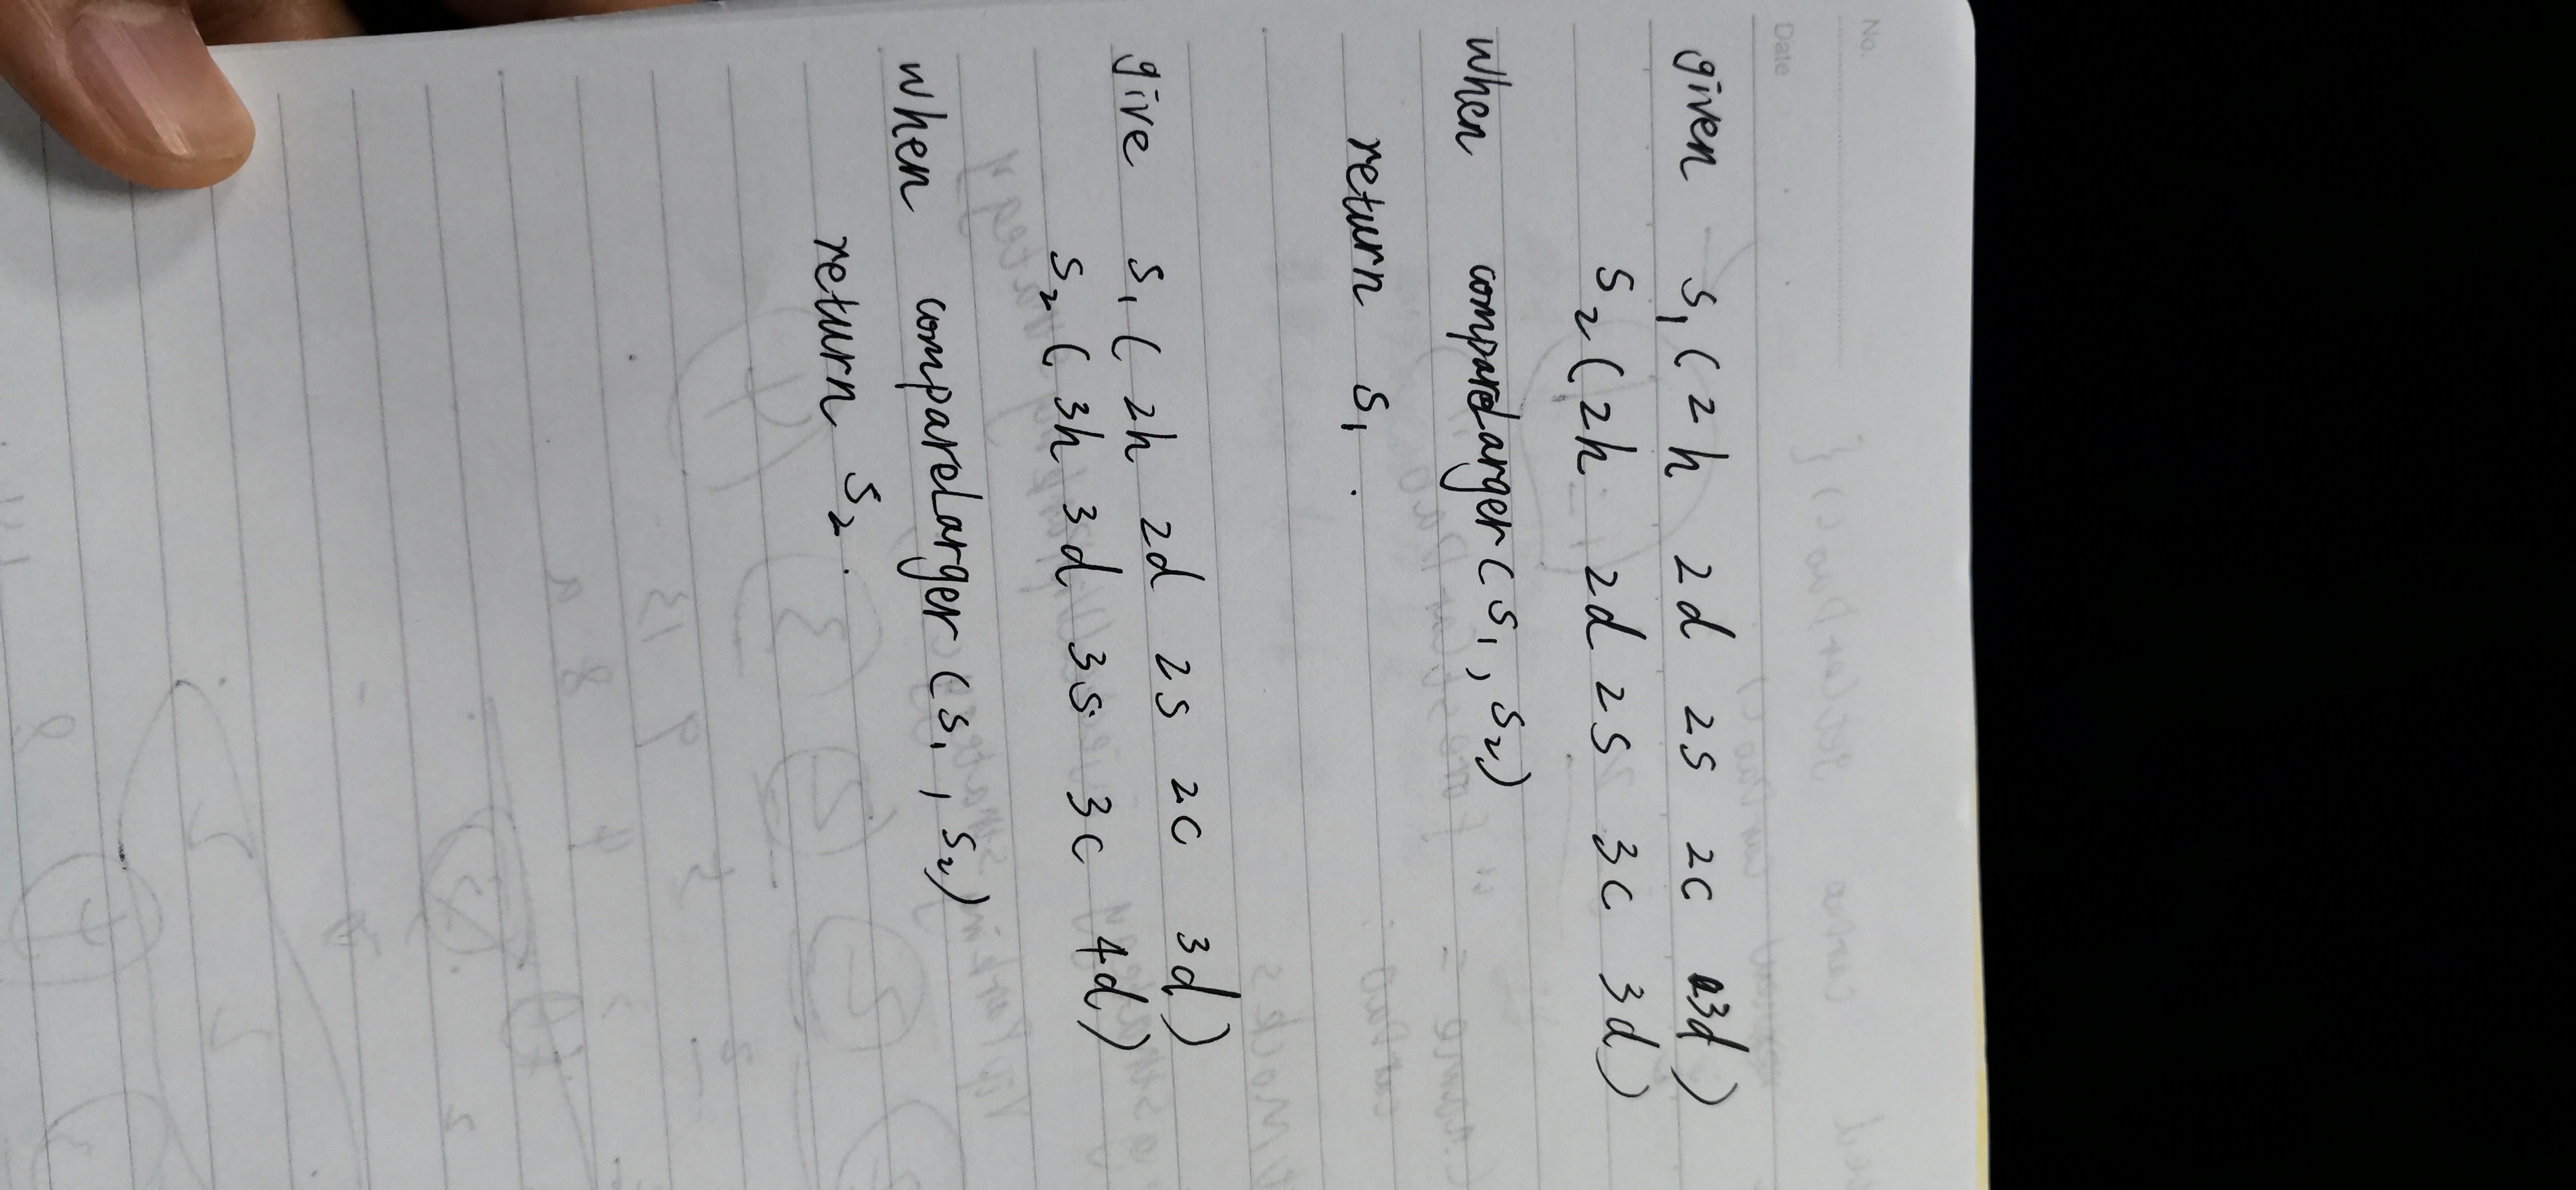 No.
Date
given s1 ( 2h 2d 2s 2c 3d )
s2 ( 2h 2d 2s 3c 3d )
when compareLarger ( s1 , s2 )
return s1 .
give s1 ( 2h 2d 2s 2c 3d )
s2 ( 3h 3d 3s 3c 4d )
when compareLarger ( s1 , s2 )
return s2 .